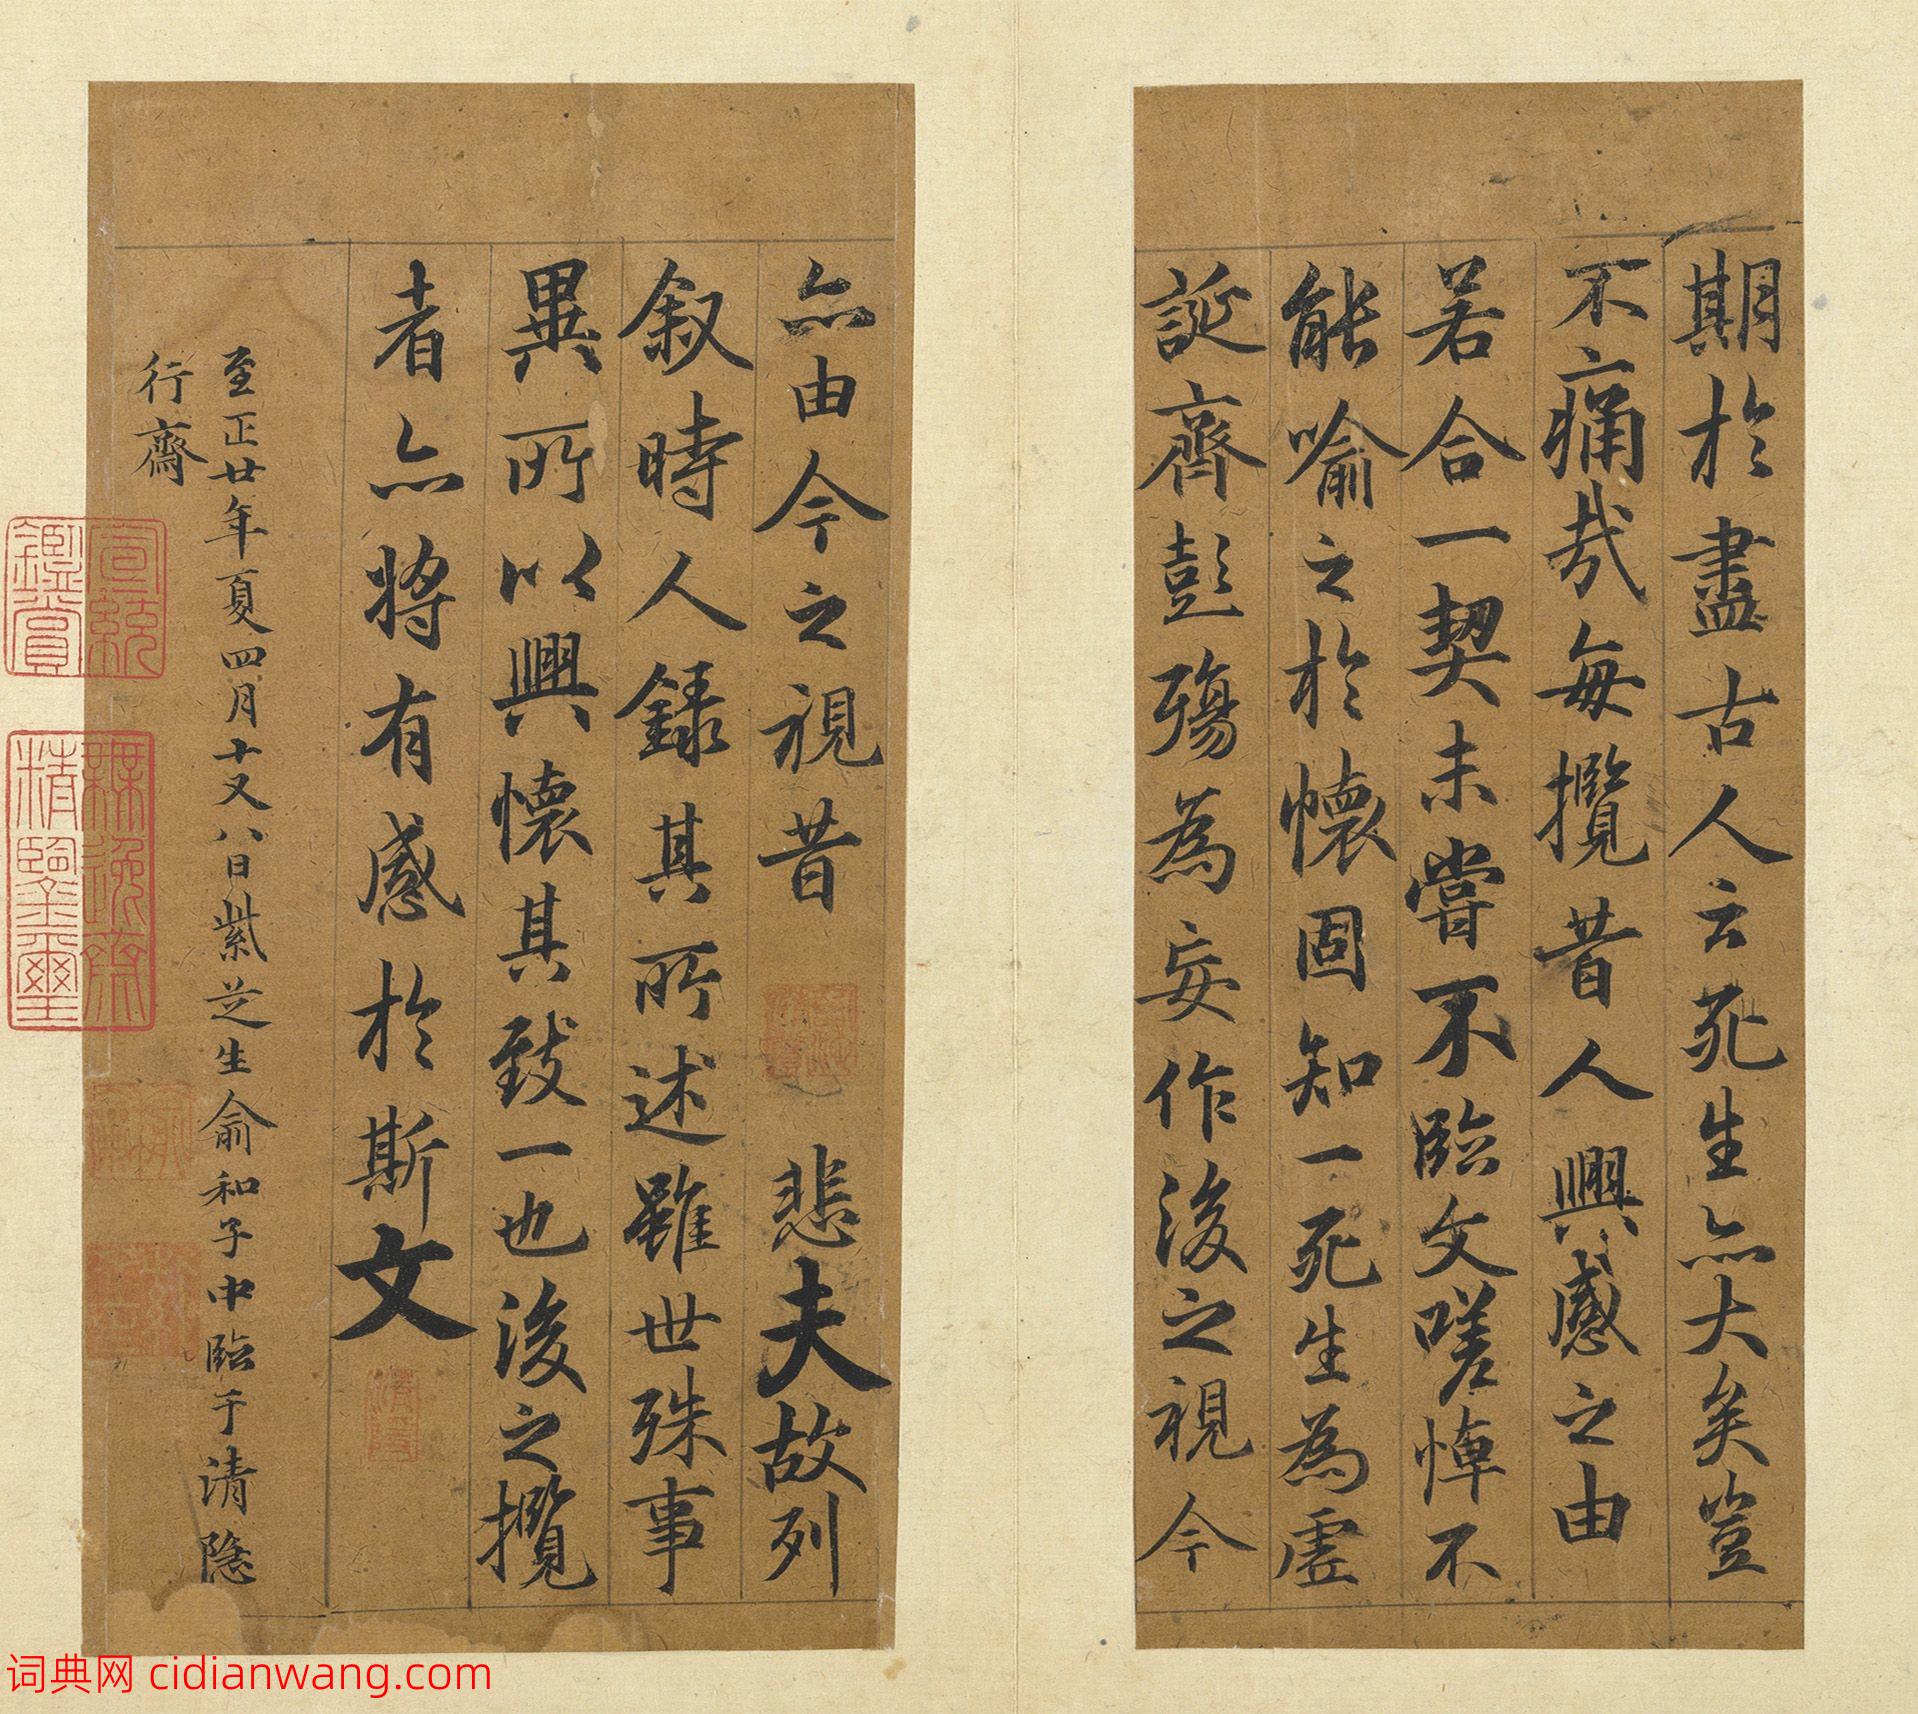 期於盡古人云死生亦大矣豈
不痛哉每攬昔人興感之由
若合一契未嘗不臨文嗟悼不
能喻之於懷固知一死生為虛
誕齊彭殤為妄作後之視今
亦由今之視昔 悲夫故列
叙時人錄其所述雖世殊事
異所以興懷其致一也後之攬
者亦將有感於斯文
至正廿年夏四月十又八日紫芝生俞和子中臨于清隱
行齋
宣統
鑑賞
無逸齋
精鑒璽
清隱
词典网 cidianwang.com